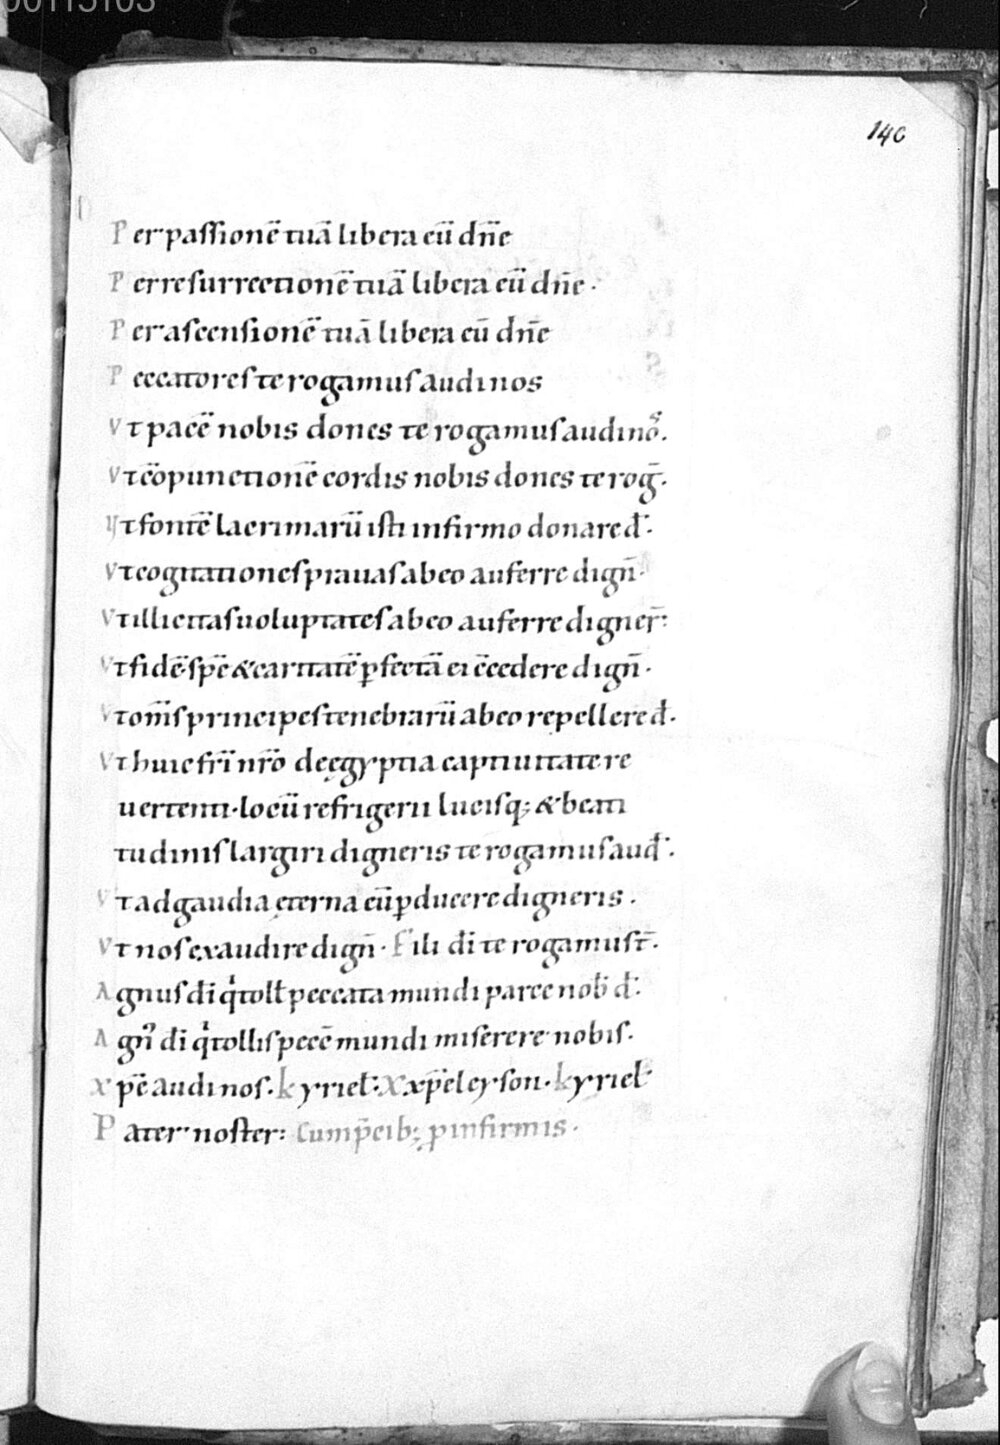 140
Per passionē tuā libera eū dn̄e
Per resurrectionē tuā libera eū dn̄e·
Per ascensionē tuā libera eū dn̄e
Peccatores te rogamus audi nos
Vt pacē nobis dones te rogamus audi nos̄.
Vt cōpunctionē cordis nobis dones te roḡ·
Vt fontē lacrimarū isti infirmo donare d̄·
Vt cogitationes prauas ab eo auferre dign̄·
Vt illicitas uoluptates ab eo auferre digner̄·
Vt fidē spē & caritatē ꝑfectā ei cc̄edere dign̄·
Vt om̄s principes tenebrarū ab eo repellere d̄·
Vt huic fr̄i nr̄o de ęgyptia captiuitate re
uertenti· locū refrigerii lucisq; & beati
tudinis largiri digneris te rogamus aud̄·
Vt ad gaudia ęterna eū ꝑducere digneris·
Vt nos exaudire dign̄· Fili dī te rogamus t̄·
Agnus dī q̇ toll̄ peccata mundi parce nob̄ d̄·
Agn᷒ dī q̇ tollis pecc̄ mundi miserere nobis·
Xpē audi nos· Kyriel̄· Xxp̄eleyson· Kyriel̄
Pater noster: Cum p̄cib; ꝓ infirmis·